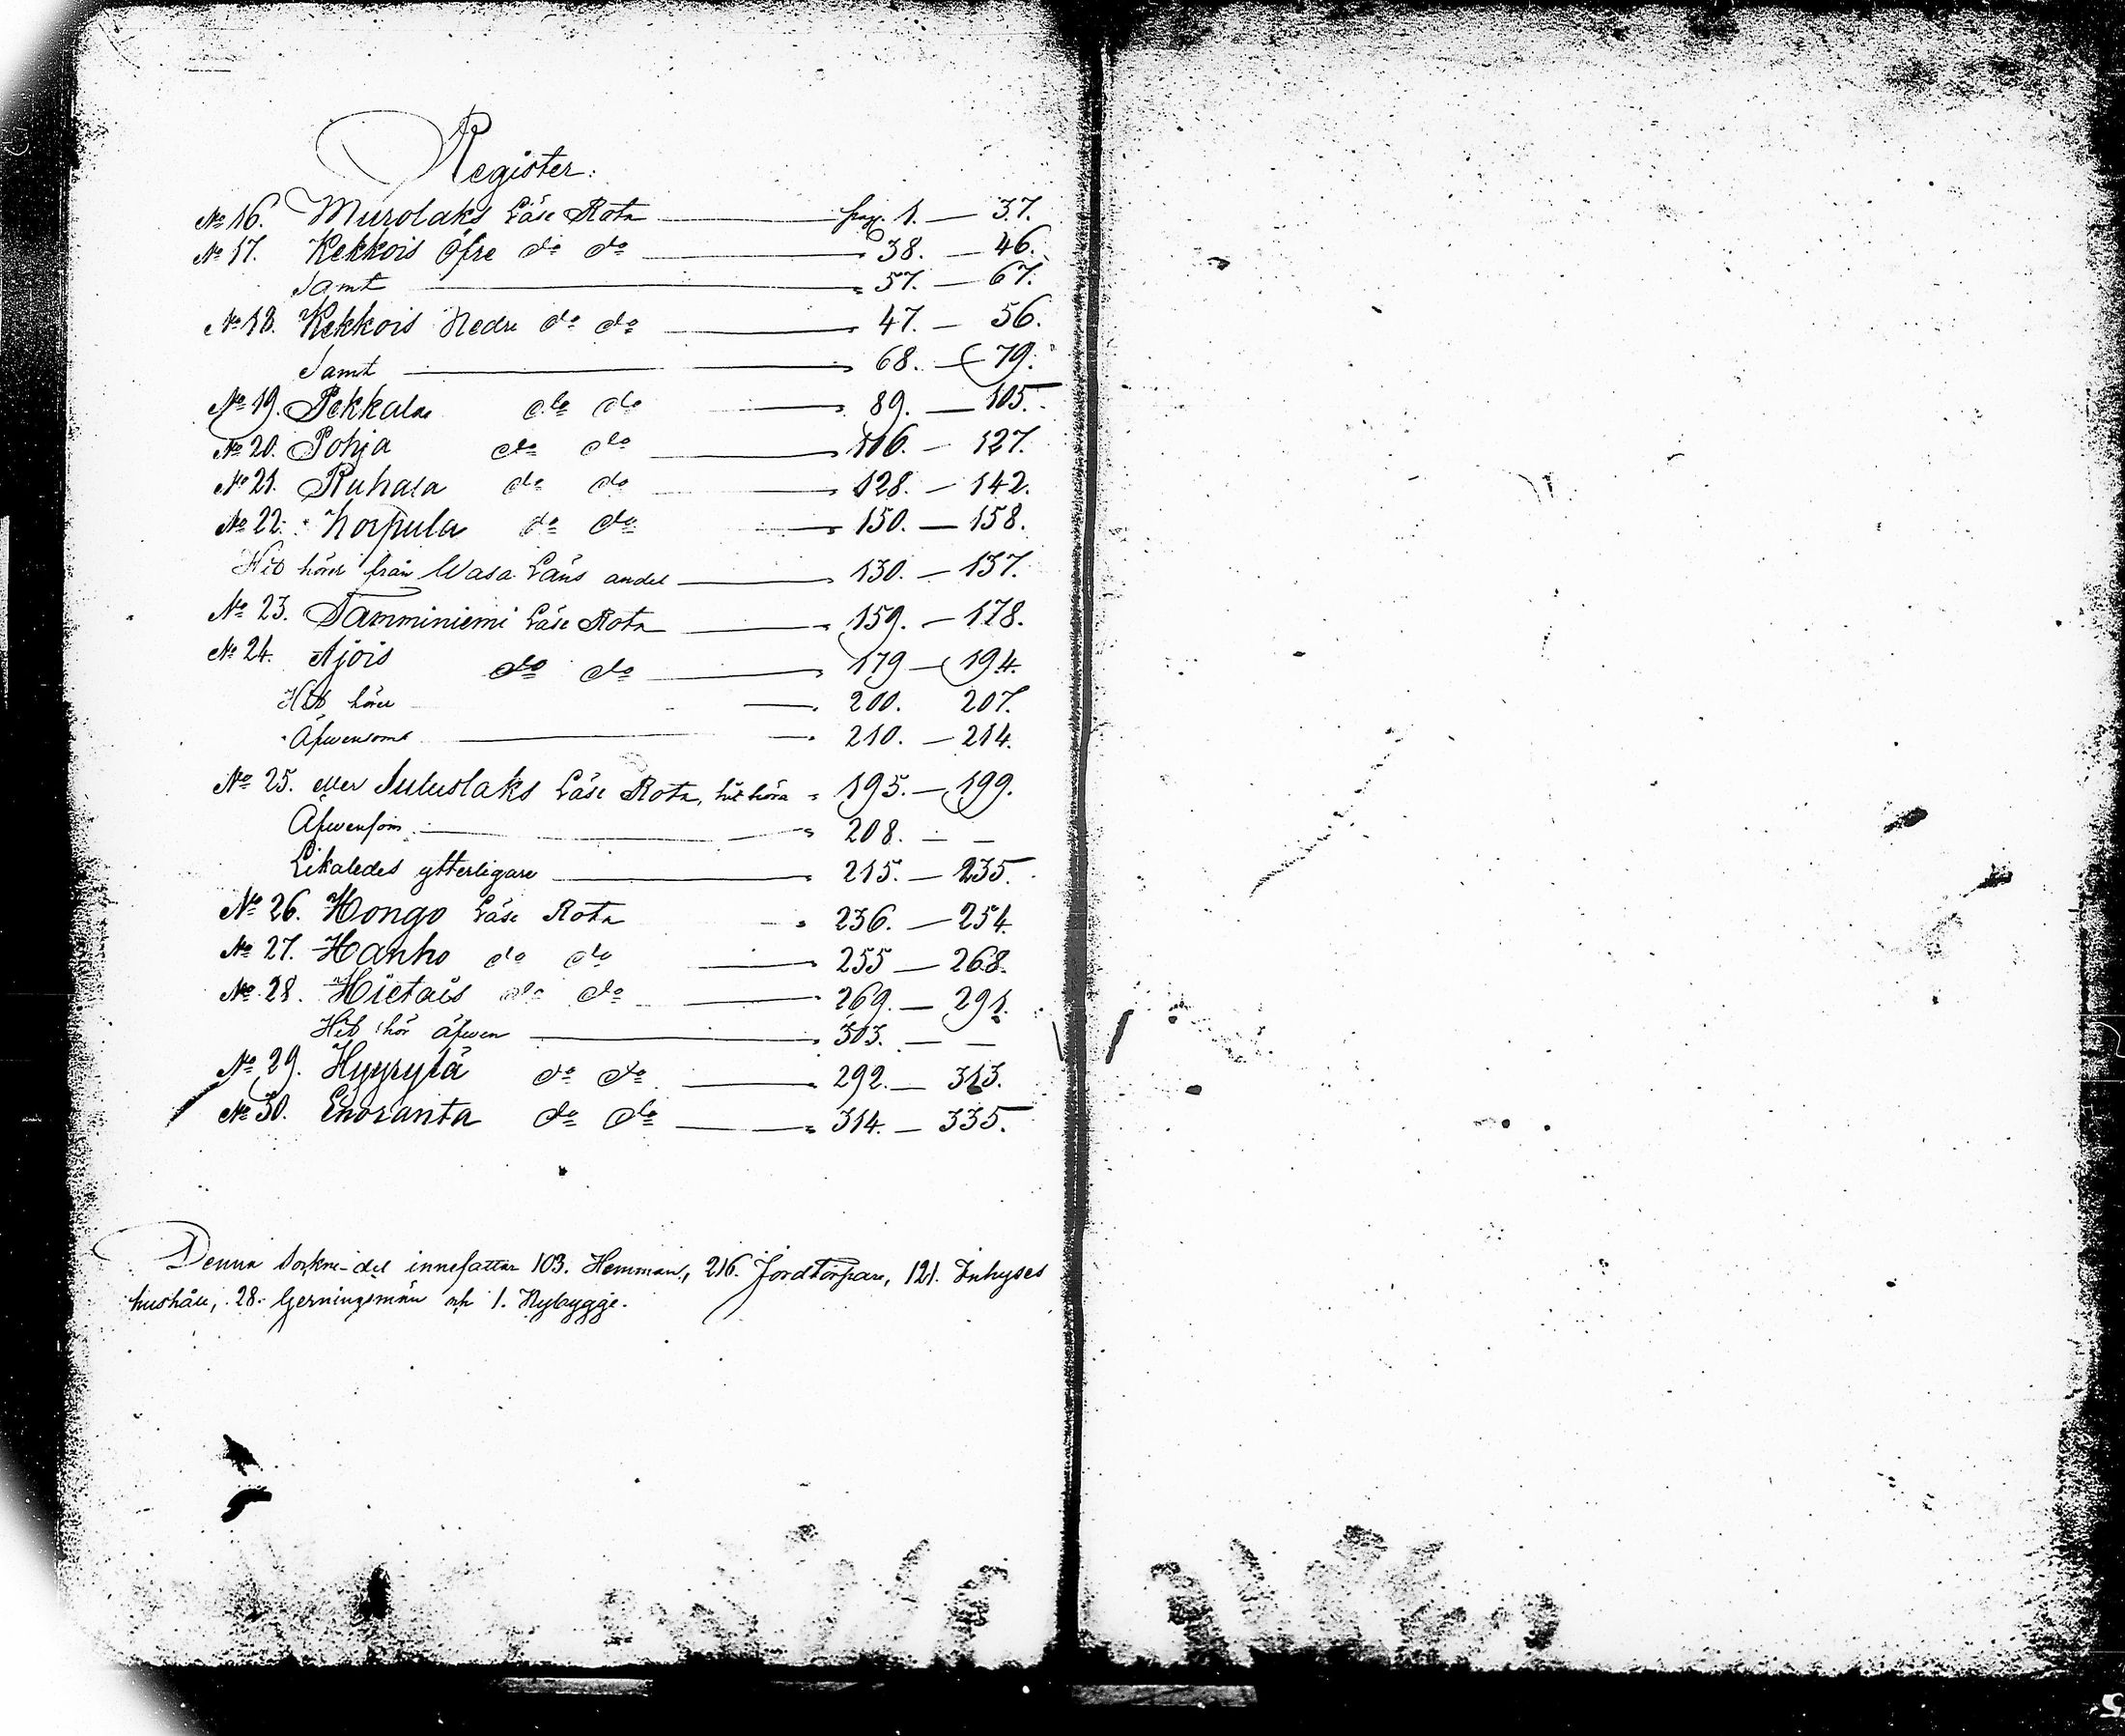 Register.
No 16. Murolaks Läse Rota pag. 1. — 37.
No 17. Kekkois Öfre do do 38. — 46.
Samt 57. — 67.
No 18. Kekkois Nedre do do 47. — 56.
Samt 68. — 79.
No 19. Pekkala do do 89. — 105.
No 20. Pohja do do 106. — 127.
No 21. Ruhala do do 128. — 142.
No 22. Korpula do do 150. — 158.
Hit hörer från Wasa Läns andel 130. — 137.
No 23. Tamminiemi Läse Rota 159. — 178.
No 24. Ajois do do 179 — 194.
Hit hörer 200. 207.
Äfwensom 210. — 214.
No 25. eller Suluslaks Läse Rota, hit höra 195. — 199.
Äfwensom 208. — —
Likaledes ytterligare 215. — 235.
No 26. Hongo Läse Rota 236. — 254.
No 27. Hanho do do 255 — 268.
No 28. Hietais do do 269. — 291.
Hit hör äfwen 303. — —
No 29. Hyyrylä do do 292. — 313.
No 30. Enoranta do do 314. — 335.
Denna Sockne-del innefattar 103. Hemman, 216. Jordtorpare, 121. Inhyses
hushåll, 28. Gerningsmän och 1. Nybygge.